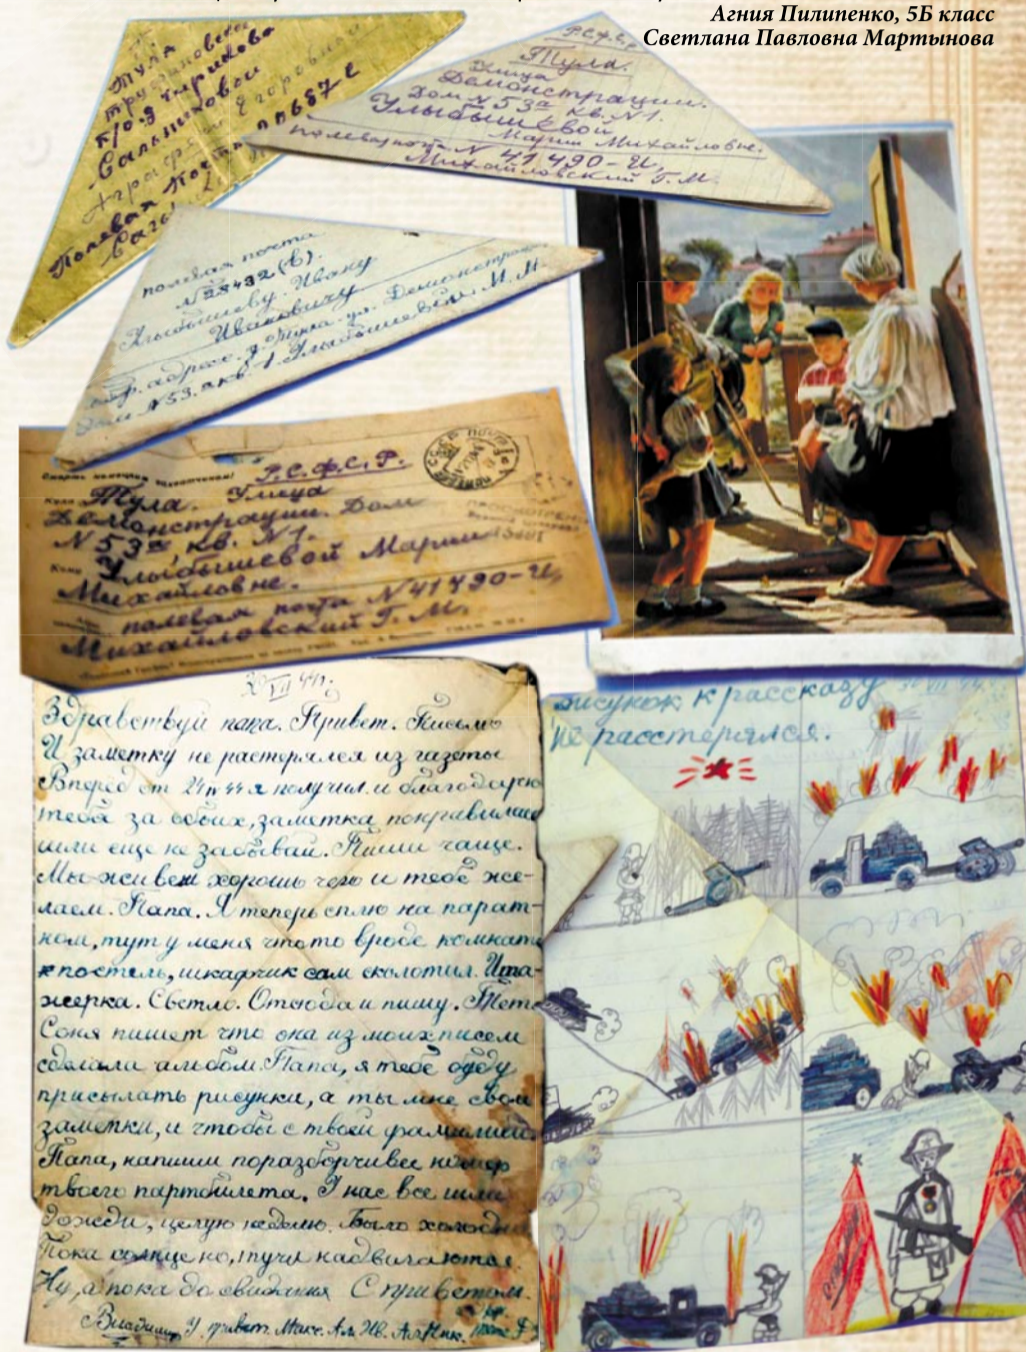 Агния Пилипенко, 5Б класс
Светлана Павловна Мартынова
Тула
п/о д
Сальниковой
Егоровны
Полевая Почта 00687
Р.С.Ф.С.Р.
Тула.
Улица
Демонстрации.
Дом N 53а кв. N1.
Улыбышевой
Марии Михайловне.
полевая почта N 41490-И,
Михайловский Г.М.
полевая почта
(в).
Улыбышеву Ивану
Ивановичу
адрес. г. Тула. ул. Демонстрации
дом N53. а кв. 1. Улыбышевой М. М.
Р.С.Ф.С.Р.
Тула. Улица
Демонстрации. Дом
N 53а кв. N1.
Кому Улыбышевой Марии
Михайловне.
полевая почта N 41490-И,
Михайловский Г.М.
30 VII 44 г.
Здравствуй папа. Привет. Письмо
И заметку не растерялся из газеты
Вперёд от 24 IV 44 я получил и благодарю
тебя за обоих, заметка понравилась
шли еще не забывай. Пиши чаще.
Мы живем хорошо чего и тебе же-
лаем. Папа. Я теперь сплю на парат-
ном, тут у меня что то вроде комнаты
постель, шкафчик сам сколотил. Эта-
жерка. Светло. Отсюда и пишу. Тетя
Соня пишет что она из моих писем
сделала альбом. Папа, я тебе буду
присылать рисунки, а ты мне свои
заметки, и чтобы с твоей фамилией
Папа, напиши поразборчивее номер
твоего партбилета. У нас все шли
дожди, целую неделю. Было холодно
Пока солнце но, тучи надвигаются.
Ну, а пока до свидания С приветом.
Владимир У. привет. Макс. Ал. Ив. Ал. Ник.
рисунок к рассказу 30 VII 44 г.
не расстерялся.